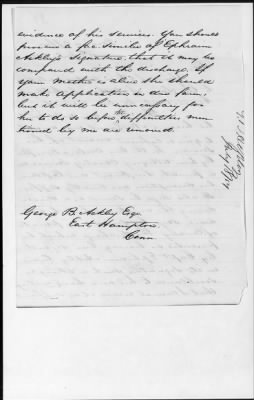 evidence of his services. You should
procure a fac-simile of Ephraim
Ackley's signature, that it may be
compared with the discharge. If
your mother is alive she should
make application in due form,
but it will be unnecessary for
her to do so before the difficulties men
tioned by me are removed.
George B. Ackley Esq
East Hampton
Conn